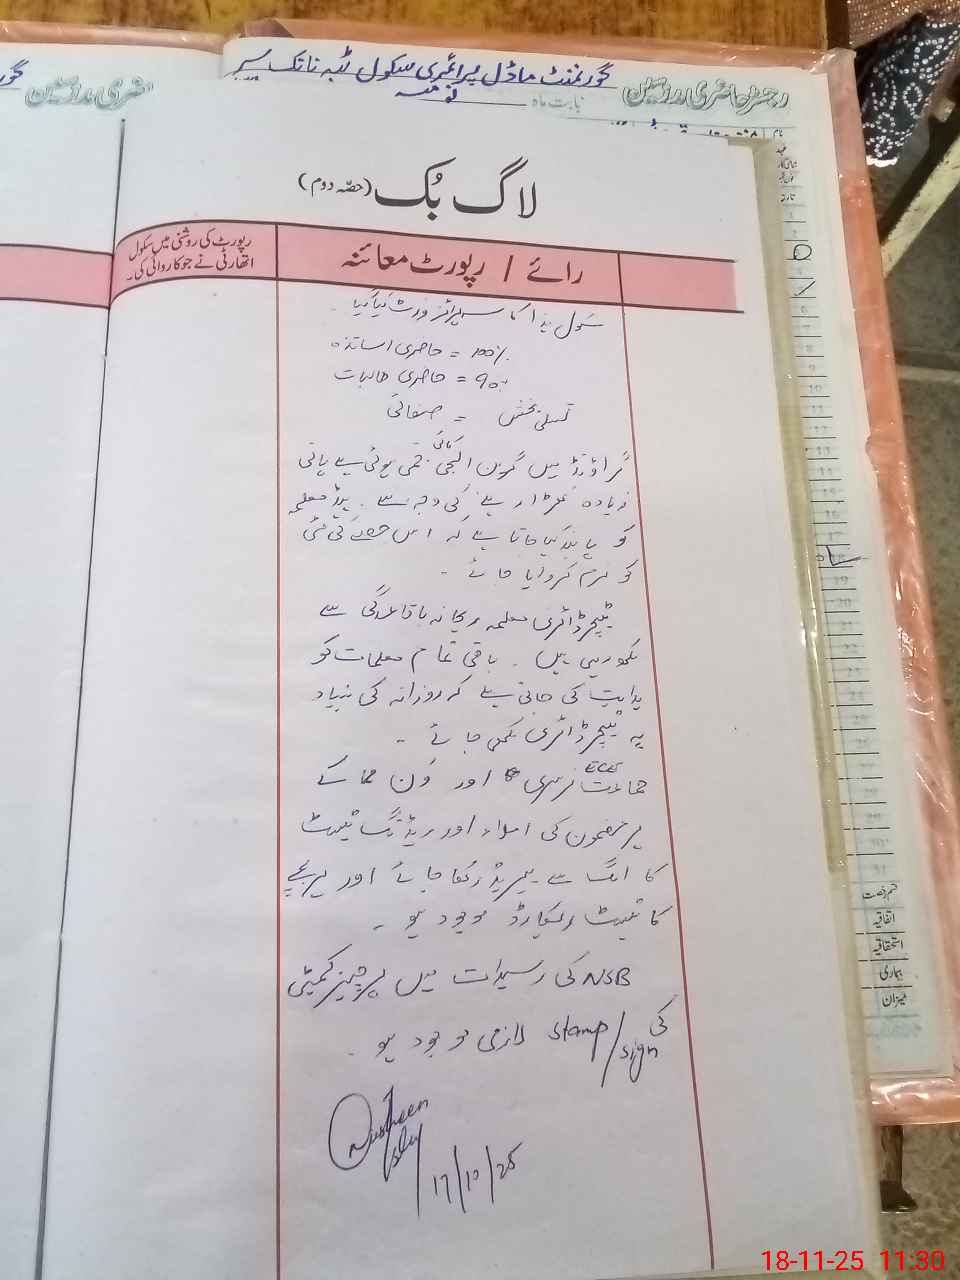 گورنمنٹ ماڈل پرائمری سکول ٹبہ نانک سر
رجسٹر حاضری مدرسین
بابت ماہ نومبر
حاضری مدرسین
لاگ بُک (حصّہ دوم)
رائے / رپورٹ معائنہ
رپورٹ کی روشنی میں سکول
اتھارٹی نے جو کاروائی کی۔
سکول ہذا کا سرپرائز وزٹ کیا گیا۔
100% = حاضری اساتذہ
90% = حاضری طالبات
تسلی بخش = صفائی
گراؤنڈ میں گرین الجی کائی جمی ہوئی ہے پانی
زیادہ کھڑا رہنے کی وجہ سے۔ ہیڈ معلمہ
کو پابند کیا جاتا ہے کہ اس حصے کی مٹی
کو نرم کروایا جائے۔
ٹیچر ڈائری معلمہ ریحانہ باقاعدگی سے
لکھ رہی ہیں۔ باقی تمام معلمات کو
ہدایت کی جاتی ہے کہ روزانہ کی بنیاد
پہ ٹیچر ڈائری لکھی جائے۔
جماعت نرسری ECE اور ون کے
ہر مضمون کی املاء اور ریڈنگ ٹیسٹ
کا الگ سے پیریڈ رکھا جائے اور ہر بچے
کا ٹیسٹ ریکارڈ موجود ہو۔
NSB کی رسیدات میں پرچیز کمیٹی
کی stamp/sign لازمی موجود ہو۔
Nusheen
17/10/25
نام
عہدہ
تاریخ
6
7
8
9
10
11
12
13
14
15
16
17
18
19
20
21
22
23
24
25
26
27
28
29
30
31
قسم رخصت
اتفاقیہ
استحقاقیہ
بیماری
میزان
18-11-25 11:30